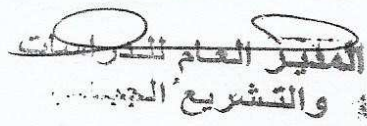 المدير العام للدراسات
والتشريع